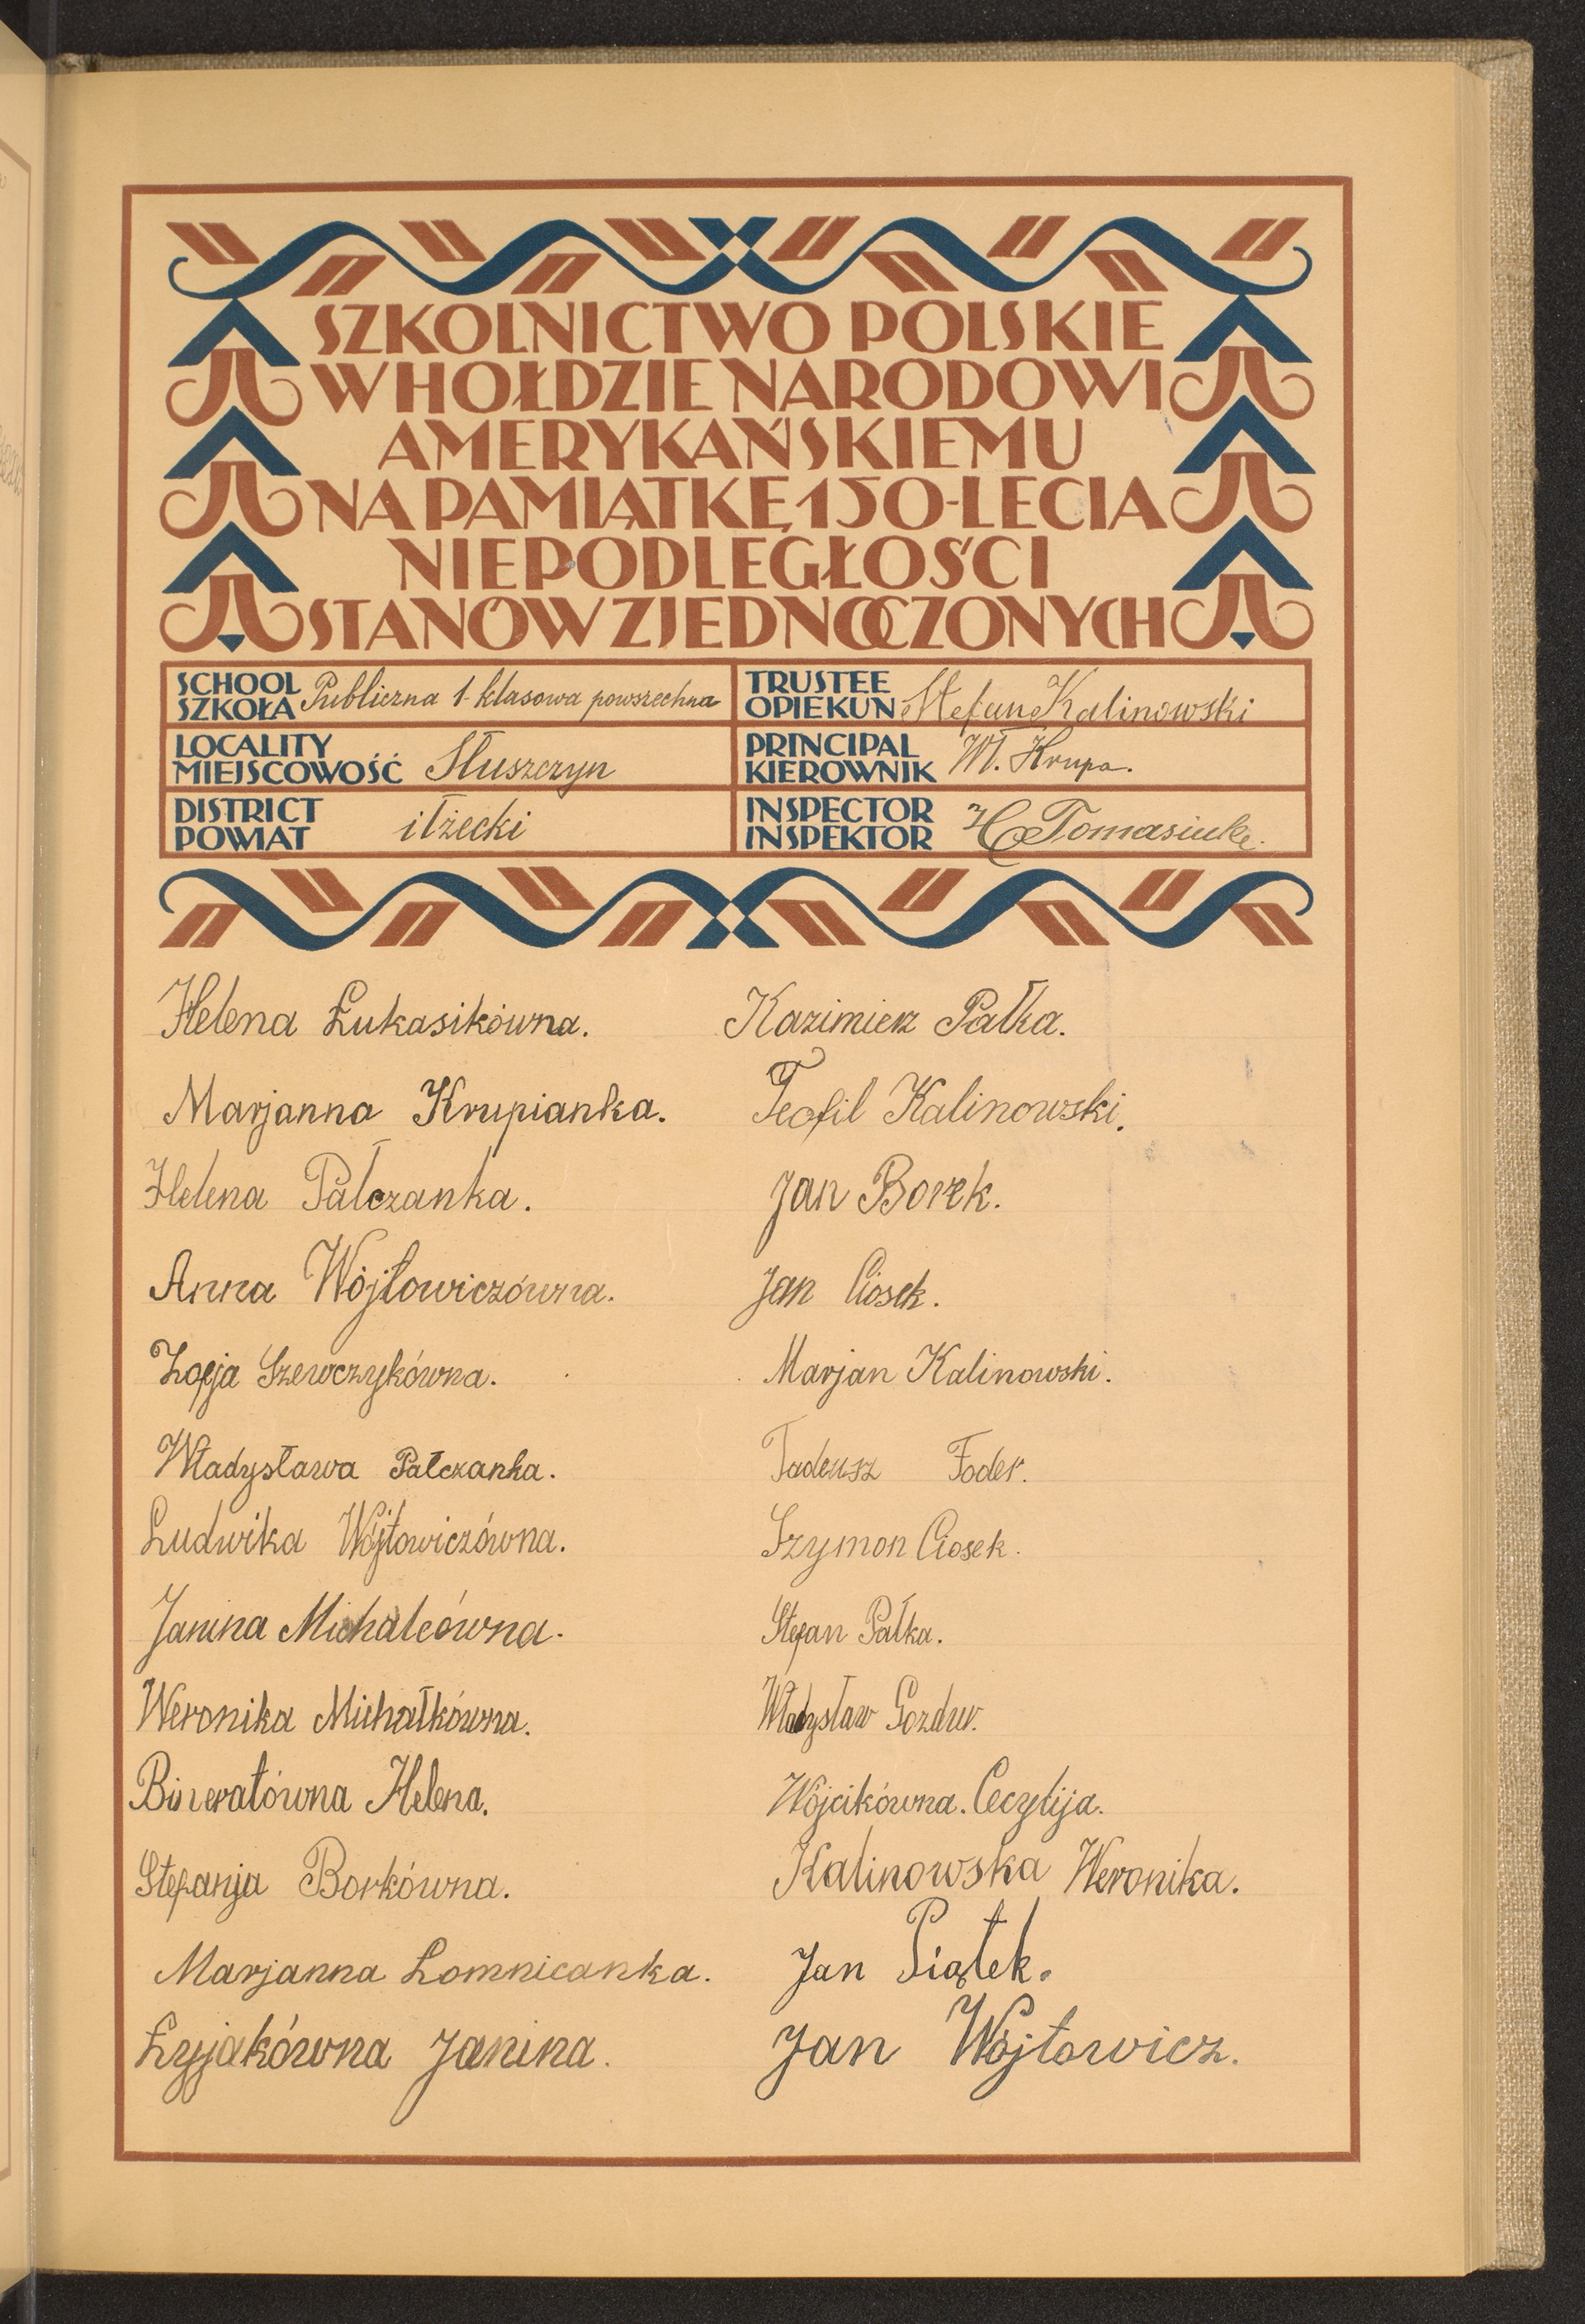 SZKOLNICTWO POLSKIE
W HOŁDZIE NARODOWI
AMERYKAŃSKIEMU
NA PAMIĄTKĘ 150-LECIA
NIEPODLEGŁOŚCI
STANÓW ZJEDNOCZONYCH
SCHOOL
SZKOŁA Publiczna 1-klasowa powszechna
TRUSTEE
OPIEKUN Stefan Kalinowski
LOCALITY
MIEJSCOWOŚĆ Słuszczyn
PRINCIPAL
KIEROWNIK Wł. Krupa.
DISTRICT
POWIAT iłżecki
INSPECTOR
INSPEKTOR Tomasiuk
Helena Łukasikówna.
Marjanna Krupianka.
Helena Pałczanka.
Anna Wójtowiczówna.
Zofja Szewczykówna.
Władysława Pałczanka.
Ludwika Wójtowiczówna.
Janina Michalcówna.
Weronika Michałkówna.
Helena.
Stefanja Borkówna.
Marjanna Łomnicanka.
Łyjakówna Janina.
Kazimierz Pałka.
Teofil Kalinowski.
Jan Borek.
Jan Ciosek.
Marjan Kalinowski.
Tadeusz Foder.
Szymon Ciosek.
Stefan Pałka.
Władysław Gozdur.
Wójcikówna. Cecylija.
Kalinowska Weronika.
Jan Piątek.
Jan Wójtowicz.